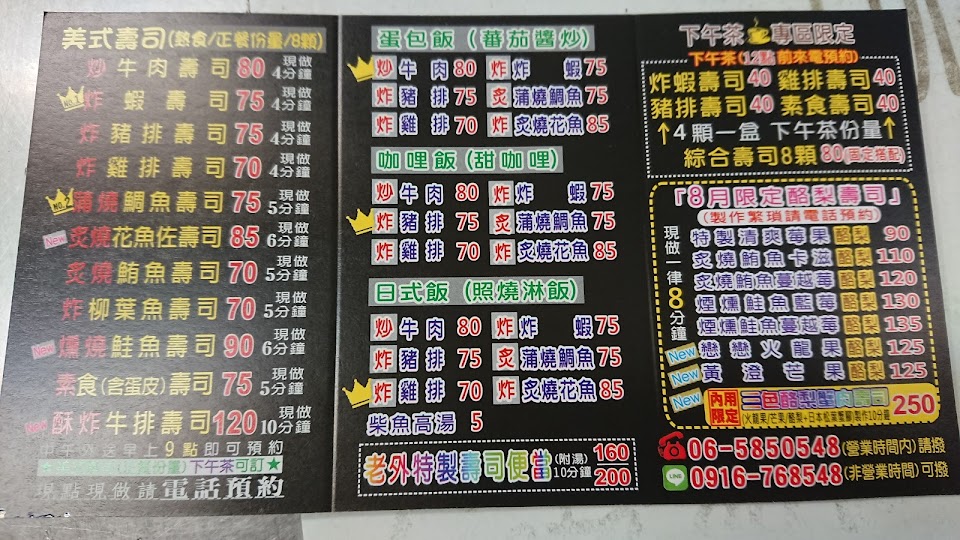 美式壽司(熱食/正餐份量/8顆)
炒牛肉壽司80 現做4分鐘
NO.1 炸蝦壽司75 現做4分鐘
炸豬排壽司75 現做4分鐘
炸雞排壽司70 現做4分鐘
NO.2 蒲燒鯛魚壽司75 現做5分鐘
New 炙燒花魚佐壽司85 現做6分鐘
炙燒鮪魚壽司70 現做5分鐘
炸柳葉魚壽司70 現做5分鐘
New 燻燒鮭魚壽司90 現做6分鐘
素食(含蛋皮)壽司75 現做5分鐘
New 酥炸牛排壽司120 現做10分鐘
早上9點即可預約
下午茶可訂★
現點現做請電話預約
蛋包飯(蕃茄醬炒)
炒牛肉80 炸炸蝦75
炸豬排75 炙蒲燒鯛魚75
炸雞排70 炸炙燒花魚85
咖哩飯(甜咖哩)
炒牛肉80 炸炸蝦75
炸豬排75 炙蒲燒鯛魚75
炸雞排70 炸炙燒花魚85
日式飯(照燒淋飯)
炒牛肉80 炸炸蝦75
炸豬排75 炙蒲燒鯛魚75
炸雞排70 炸炙燒花魚85
柴魚高湯 5
老外特製壽司便當(附湯)10分鐘 160 200
下午茶專區限定
下午茶(12點前來電預約)
炸蝦壽司40 雞排壽司40
豬排壽司40 素食壽司40
↑4顆一盒 下午茶份量↑
綜合壽司8顆80(固定搭配)
「8月限定酪梨壽司」
(製作繁瑣請電話預約)
現做一律8分鐘
特製清爽莓果酪梨 90
炙燒鮪魚卡滋酪梨 110
炙燒鮪魚蔓越莓酪梨 120
煙燻鮭魚藍莓酪梨 130
煙燻鮭魚蔓越莓酪梨 135
New 戀戀火龍果酪梨 125
New 黃澄芒果酪梨 125
New 內用限定 三色酪梨蟹肉壽司 250
(火龍果/芒果/酪梨+日本松葉蟹腳)製作10分鐘
06-5850548(營業時間內)請撥
LINE 0916-768548(非營業時間)可撥